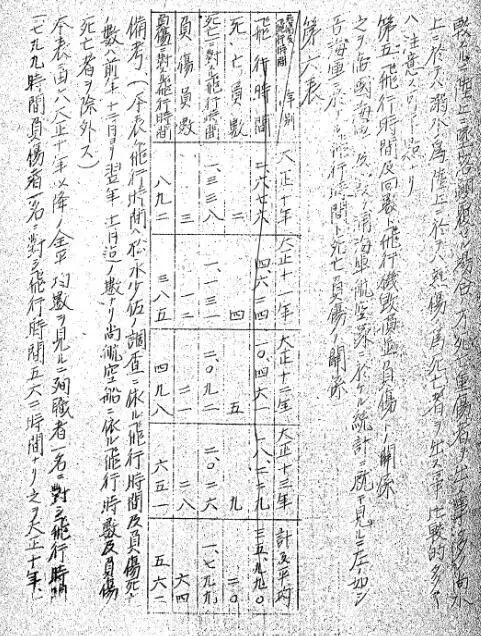 上ニ於テハ溺水ノ為陸上ニ於テハ熱傷ノ為死亡者ヲ出ス事比較的多キ
ハ注意スベキ
第五、飛行時間及回数ト飛行機毀損並負傷トノ関係
之ヲ霞浦海軍航空隊ニ於ケル統計ニ就テ見ルニ左ノ如シ
吾海軍ニ於ケル飛行時間ト死亡負傷トノ関係
第六表
年別 大正十年 大正十一年 大正十二年 大正十三年 計及平均
飛行時間 二、六七六 四、六二四 一〇、四六一 一八、二二九 三五、九九〇
死亡員数 二 四 五 九 二〇
死亡ニ対スル飛行時間 一、三三八 一、一三一 二、〇九二 二、〇二六 一、七九九
負傷員数 三 一二 二一 二八 六四
負傷ニ対スル飛行時間 八九二 三八五 四九八 六五一 五六二
備考、(一本表ノ飛行時間ハ 少佐ノ調査ニ依ル飛行時間及負傷死亡
数ハ前年十二月ヨリ翌年十一月迄ノ数ナリ尚航空船ニ依ル飛行時数及負傷
死亡者ヲ除外ス)
本表ニ由レバ大正十年以降ノ全平均数ヲ見ルニ殉職者一名ニ対シ飛行時間
一七九九時間負傷者一名ニ対シ飛行時間五六二時間ナリ之ヲ大正十年、